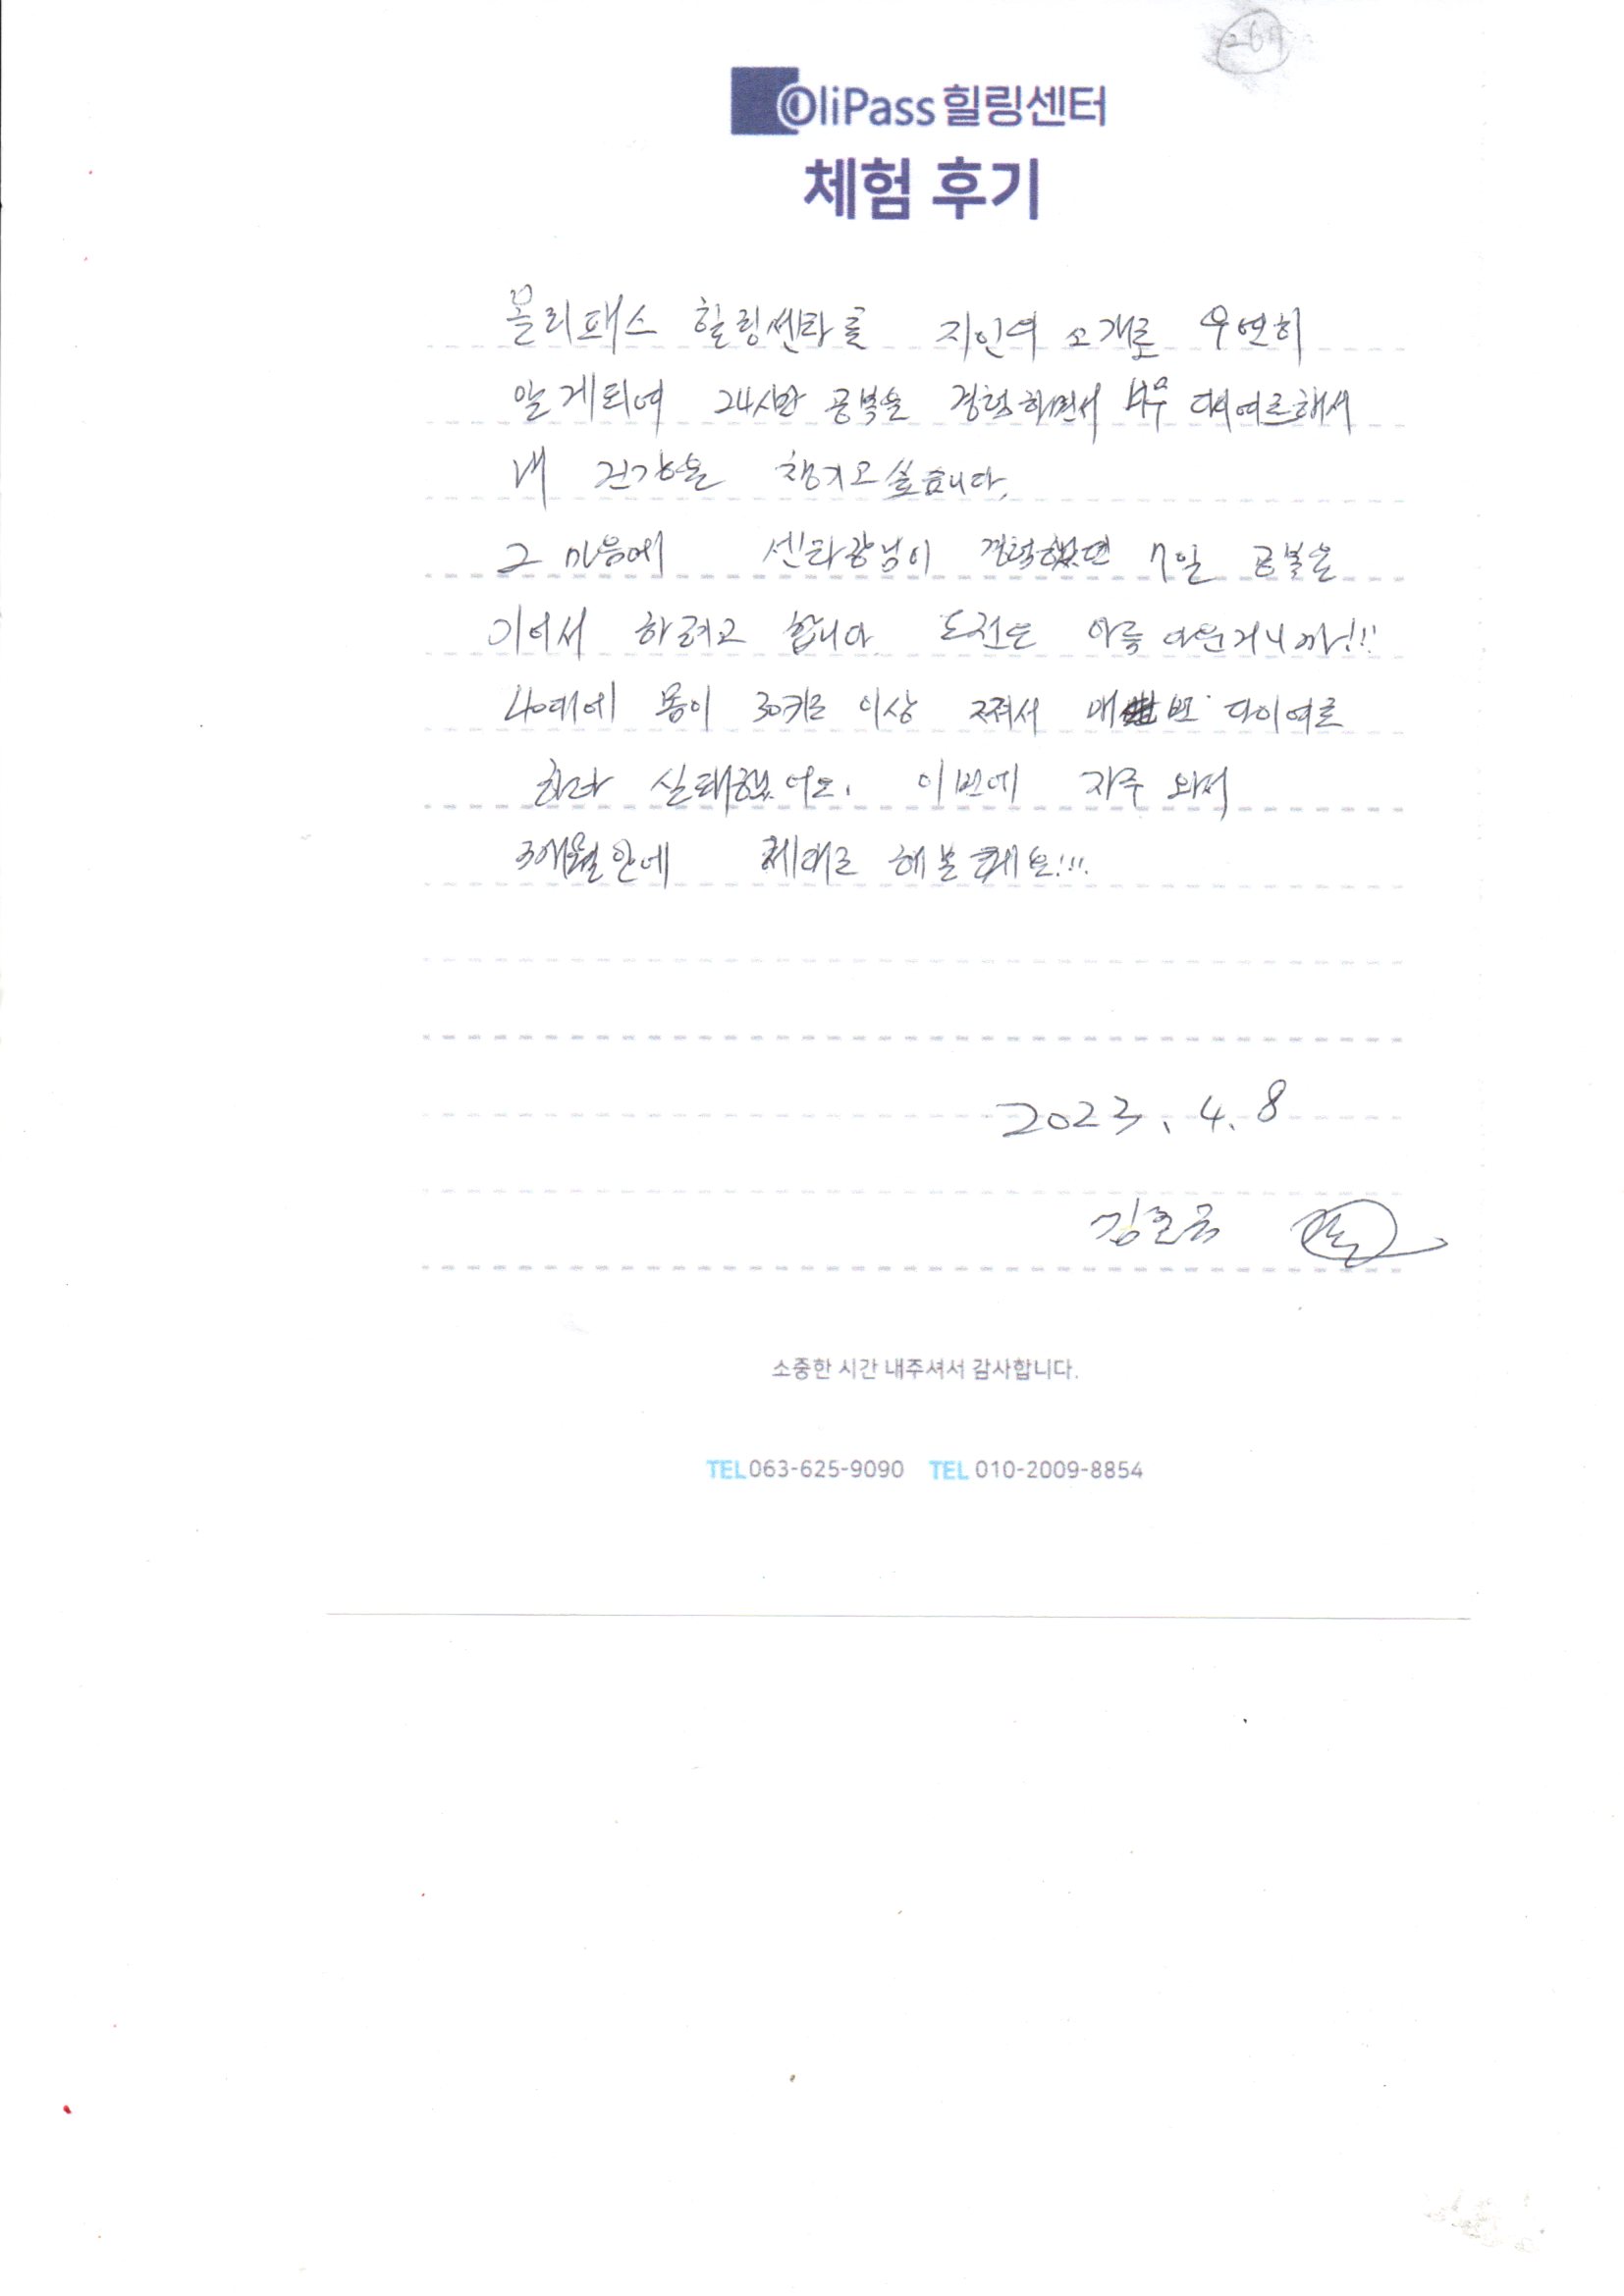 OliPass 힐링센터
체험 후기
올리패스 힐링센타를 지인의 소개로 우연히
알게되여 24시만 공복을 경험하면서 너무 해서
내 건강을 챙기고 싶습니다.
그 마음에 센타장님이 경험했던 7일 공복을
이어서 하려고 합니다. 도전은 아름다운거니까!!!
40대에 몸이 30키로 이상 쪄서 매번 다이여르
하다 실패했어요. 이번에 자주 와서
3개월안에 제대로 해볼께요!!!
2023. 4. 8
소중한 시간 내주셔서 감사합니다.
TEL 063-625-9090 TEL 010-2009-8854